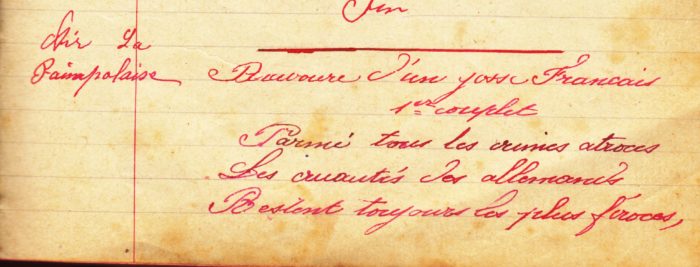 Fin
Air La
Paimpolaise
Bravoure d'un goss Francais
1er couplet
Parmé tous les crimes atroces
Les cruautés des allemands
Restent toujours les plus féroces,